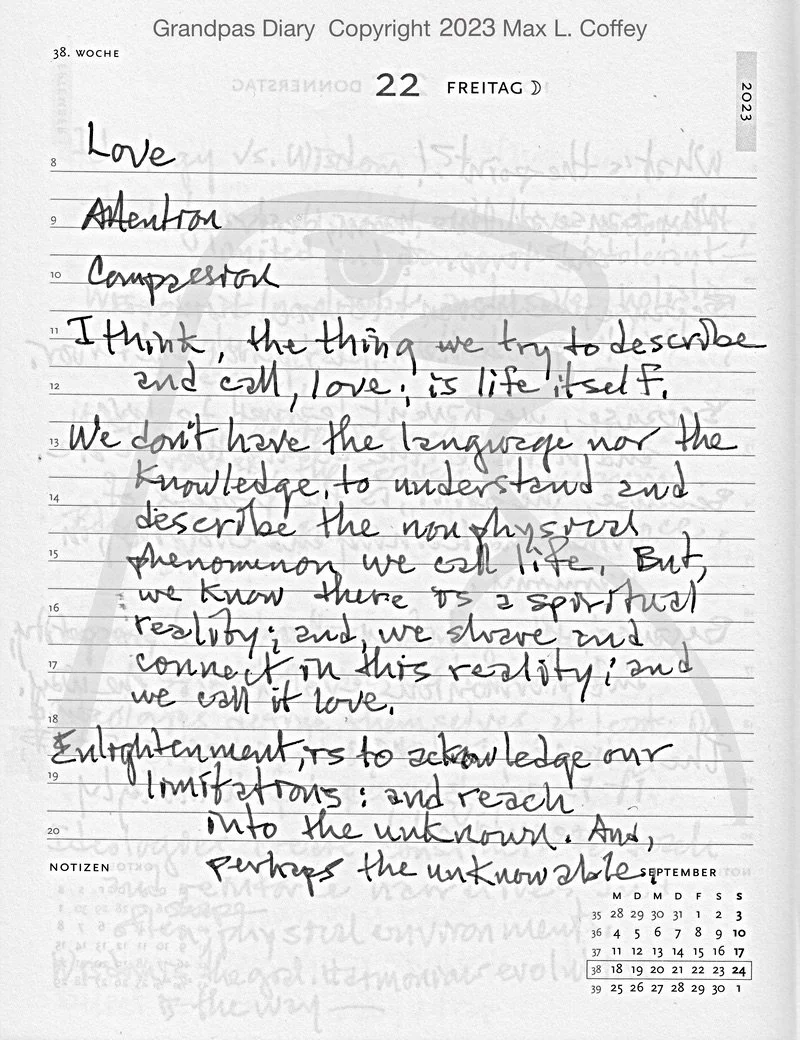 Grandpas Diary Copyright 2023 Max L. Coffey
38. WOCHE
22 FREITAG
2023
8 Love
9 Attention
10 Compassion
11 I think, the thing we try to describe
12 and call, love; is life itself.
13 We don't have the language nor the
knowledge, to understand and
14 describe the non physical
15 phenomenon we call life. But,
we know there is a spiritual
16 reality; and, we share and
17 connect in this reality; and
we call it love.
18
Enlightenment, is to acknowledge our
19 limitations: and reach
into the unknown. And,
20
perhaps the unknowable.
NOTIZEN
SEPTEMBER
M D M D F S S
35 28 29 30 31 1 2 3
36 4 5 6 7 8 9 10
37 11 12 13 14 15 16 17
38 18 19 20 21 22 23 24
39 25 26 27 28 29 30 1